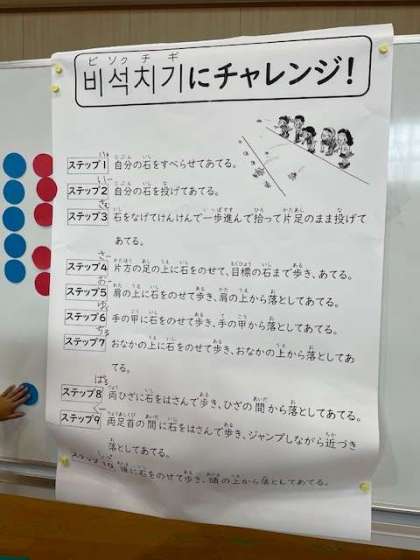 비석치기にチャレンジ!
ステップ1 自分の石をすべらせてあてる。
ステップ2 自分の石を投げてあてる。
ステップ3 石をなげてけんけんで一歩進んで拾って片足のまま投げて
あてる。
ステップ4 片方の足の上に石をのせて、目標の石まで歩き、あてる。
ステップ5 肩の上に石をのせて歩き、肩の上から落としてあてる。
ステップ6 手の甲に石をのせて歩き、手の甲から落としてあてる。
ステップ7 おなかの上に石をのせて歩き、おなかの上から落としてあ
てる。
ステップ8 両ひざに石をはさんで歩き、ひざの間から落としてあてる。
ステップ9 両足首の間に石をはさんで歩き、ジャンプしながら近づき
落としてあてる。
ステップ10 頭に石をのせて歩き、頭の上から落としてあてる。